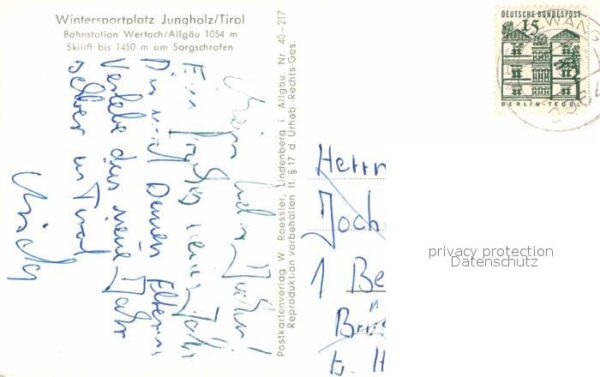 Wintersportplatz Jungholz/Tirol
Bahnstation Wertach/Allgäu 1054 m
Skilift bis 1450 m am Sorgschrofen
Mein lieber
Ein frohes neues Jahr
Dir und Deinen Eltern
Verlebe das neue Jahr
selber in Tirol
Postkartenverlag W. Roessler, Lindenberg i. Allgäu, Nr. 40-217
Reproduktion vorbehalten lt. § 17 d. Urheb.-Rechts-Ges.
DEUTSCHE BUNDESPOST
15
BERLIN-TEGEL
WANG
Herrn
Joch
1 Be
privacy protection
Datenschutz